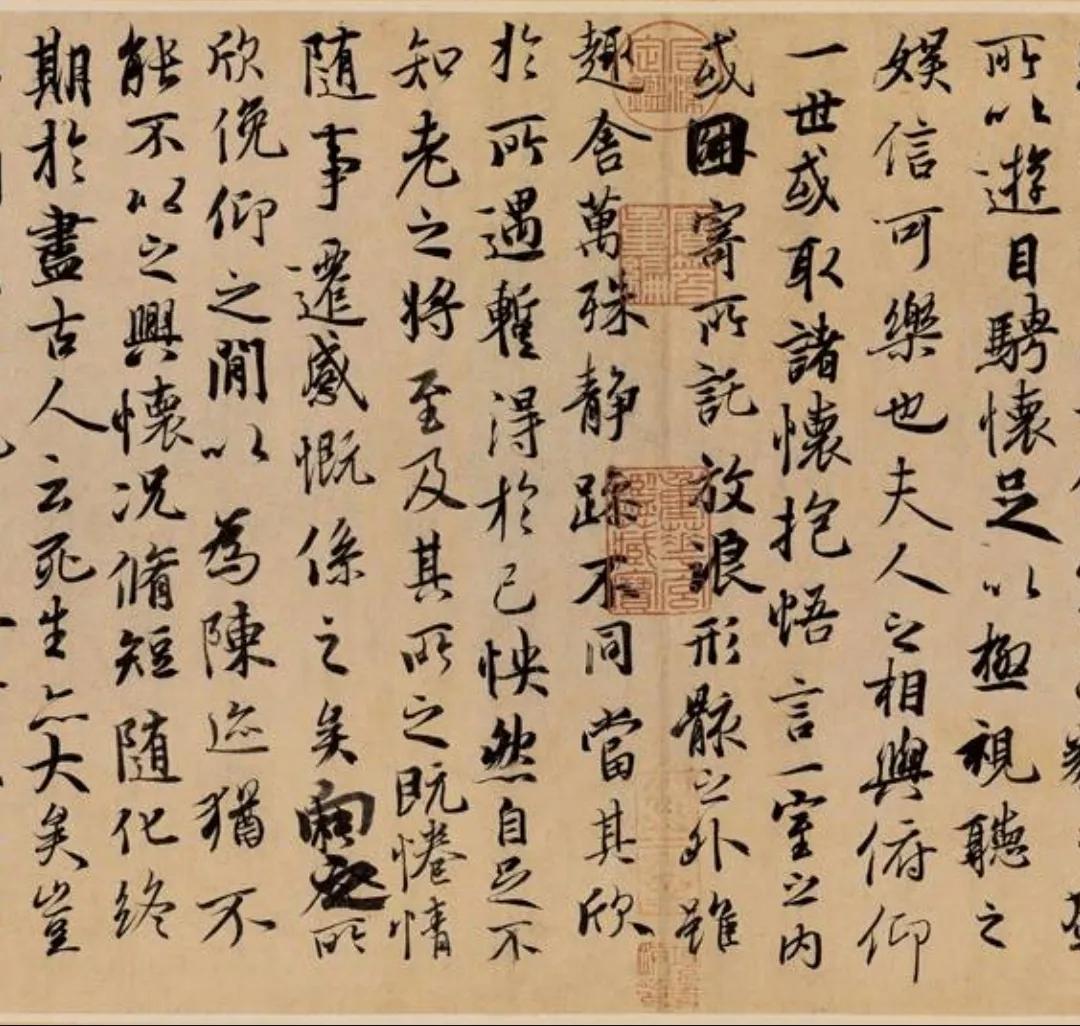 所以遊目騁懷足以極視聽之
娛信可樂也夫人之相與俯仰
一世或取諸懷抱悟言一室之內
或因寄所託放浪形骸之外雖
趣舍萬殊静躁不同當其欣
於所遇暫得於己怏然自足不
知老之將至及其所之既惓情
随事遷感慨係之矣向之所
欣俛仰之閒以為陳迹猶不
能不以之興懷況脩短随化終
期於盡古人云死生亦大矣豈